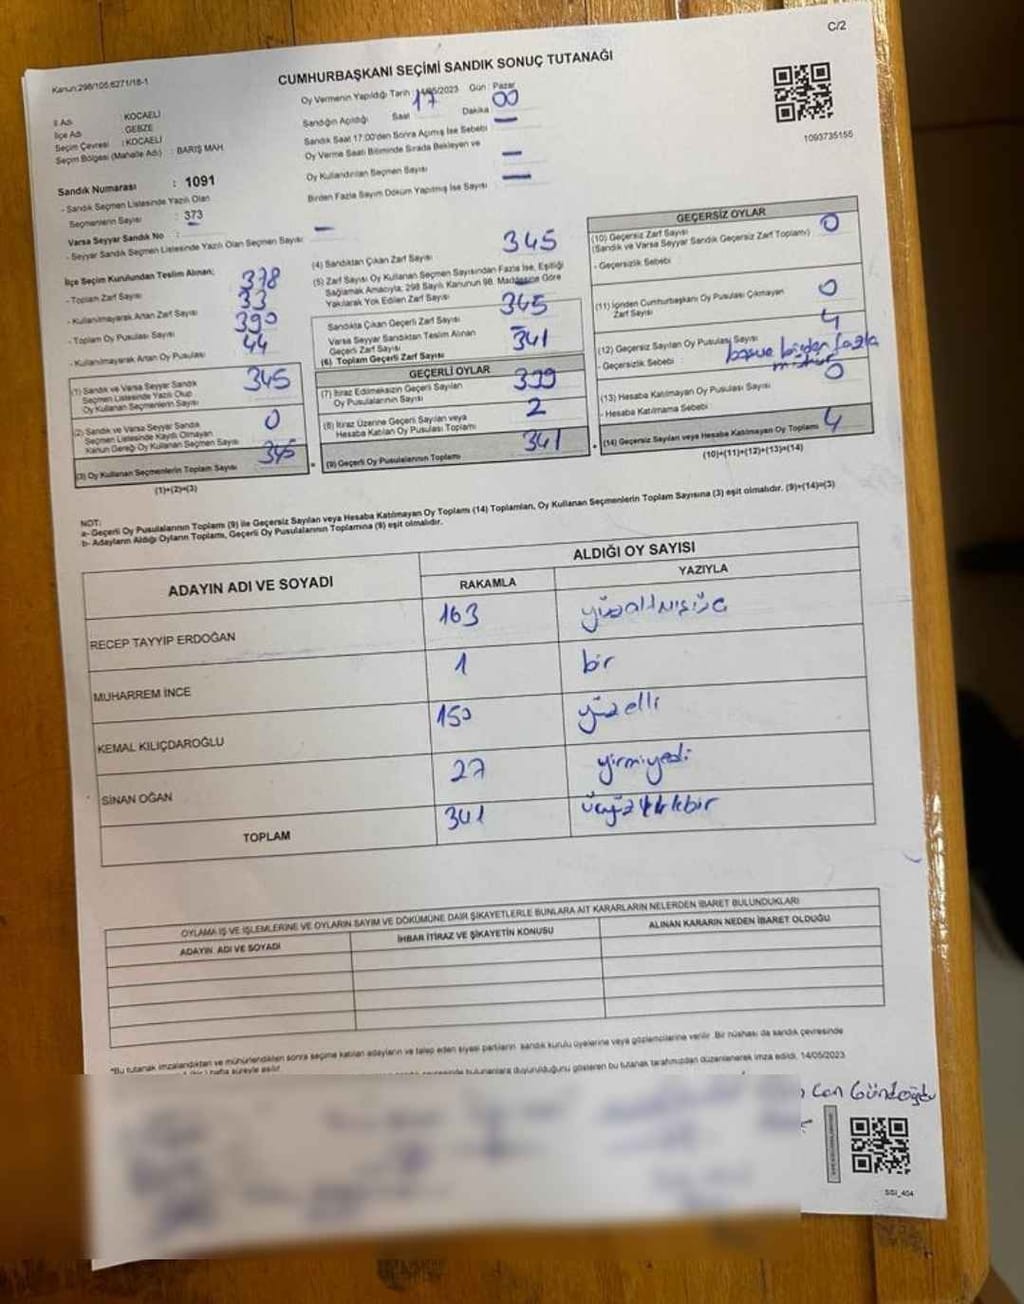 C/2
Kanun:298/105;6271/18-1
CUMHURBAŞKANI SEÇİMİ SANDIK SONUÇ TUTANAĞI
İl Adı : KOCAELİ
İlçe Adı : GEBZE
Seçim Çevresi : KOCAELİ
Seçim Bölgesi (Mahalle Adı) : BARIŞ MAH.
Sandık Numarası : 1091
- Sandık Seçmen Listesinde Yazılı Olan
Seçmenlerin Sayısı : 373
Varsa Seyyar Sandık No : -
- Seyyar Sandık Seçmen Listesinde Yazılı Olan Seçmen Sayısı -
Oy Vermenin Yapıldığı Tarih : 14/05/2023 Gün : Pazar
Sandığın Açıldığı Saat 17 Dakika 00
Sandık Saat 17:00'den Sonra Açılmış İse Sebebi -
Oy Verme Saati Bitiminde Sırada Bekleyen ve
Oy Kullandırılan Seçmen Sayısı -
Birden Fazla Sayım Döküm Yapılmış İse Sayısı -
1093735155
İlçe Seçim Kurulundan Teslim Alınan;
- Toplam Zarf Sayısı 378
- Kullanılmayarak Artan Zarf Sayısı 33
- Toplam Oy Pusulası Sayısı 390
- Kullanılmayarak Artan Oy Pusulası 44
(1) Sandık ve Varsa Seyyar Sandık
Seçmen Listesinde Yazılı Olup
Oy Kullanan Seçmenlerin Sayısı 345
(2) Sandık ve Varsa Seyyar Sandık
Seçmen Listesinde Kayıtlı Olmayan
Kanun Gereği Oy Kullanan Seçmen Sayısı 0
(3) Oy Kullanan Seçmenlerin Toplam Sayısı 345
(1)+(2)=(3)
(4) Sandıktan Çıkan Zarf Sayısı 345
(5) Zarf Sayısı Oy Kullanan Seçmen Sayısından Fazla İse, Eşitliği
Sağlamak Amacıyla; 298 Sayılı Kanunun 98. Maddesine Göre
Yakılarak Yok Edilen Zarf Sayısı -
Sandıkta Çıkan Geçerli Zarf Sayısı 345
Varsa Seyyar Sandıktan Teslim Alınan
Geçerli Zarf Sayısı
(6) Toplam Geçerli Zarf Sayısı 341
GEÇERLİ OYLAR
(7) İtiraz Edilmeksizin Geçerli Sayılan
Oy Pusulalarının Sayısı 339
(8) İtiraz Üzerine Geçerli Sayılan veya
Hesaba Katılan Oy Pusulası Toplamı 2
(9) Geçerli Oy Pusulalarının Toplamı 341
GEÇERSİZ OYLAR
(10) Geçersiz Zarf Sayısı 0
(Sandık ve Varsa Seyyar Sandık Geçersiz Zarf Toplamı)
- Geçersizlik Sebebi
(11) İçinden Cumhurbaşkanı Oy Pusulası Çıkmayan
Zarf Sayısı 0
(12) Geçersiz Sayılan Oy Pusulası Sayısı 4
- Geçersizlik Sebebi : birden fazla
mühür
(13) Hesaba Katılmayan Oy Pusulası Sayısı 0
- Hesaba Katılmama Sebebi
(14) Geçersiz Sayılan veya Hesaba Katılmayan Oy Toplamı 4
(10)+(11)+(12)+(13)=(14)
NOT:
a- Geçerli Oy Pusulalarının Toplamı (9) ile Geçersiz Sayılan veya Hesaba Katılmayan Oy Toplamı (14) Toplamları, Oy Kullanan Seçmenlerin Toplam Sayısına (3) eşit olmalıdır. (9)+(14)=(3)
b- Adayların Aldığı Oyların Toplamı, Geçerli Oy Pusulalarının Toplamına (9) eşit olmalıdır.
ADAYIN ADI VE SOYADI
ALDIĞI OY SAYISI
RAKAMLA YAZIYLA
RECEP TAYYİP ERDOĞAN 163 yüzaltmışüç
MUHARREM İNCE 1 bir
KEMAL KILIÇDAROĞLU 150 yüzelli
SİNAN OĞAN 27 yirmiyedi
TOPLAM 341 üçyüzkırkbir
OYLAMA İŞ VE İŞLEMLERİNE VE OYLARIN SAYIM VE DÖKÜMÜNE DAİR ŞİKAYETLERLE BUNLARA AİT KARARLARIN NELERDEN İBARET BULUNDUKLARI
ADAYIN ADI VE SOYADI İHBAR İTİRAZ VE ŞİKAYETİN KONUSU ALINAN KARARIN NEDEN İBARET OLDUĞU
*Bu tutanak imzalandıktan ve mühürlendikten sonra seçime katılan adayların ve talep eden siyasi partilerin sandık kurulu üyelerine veya gözlemcilerine verilir. Bir nüshası da sandık çevresinde
bulunanlara duyurulduğunu gösteren bu tutanak tarafımızdan düzenlenerek imza edildi. 14/05/2023
Can Gündoğdu
SSI_404